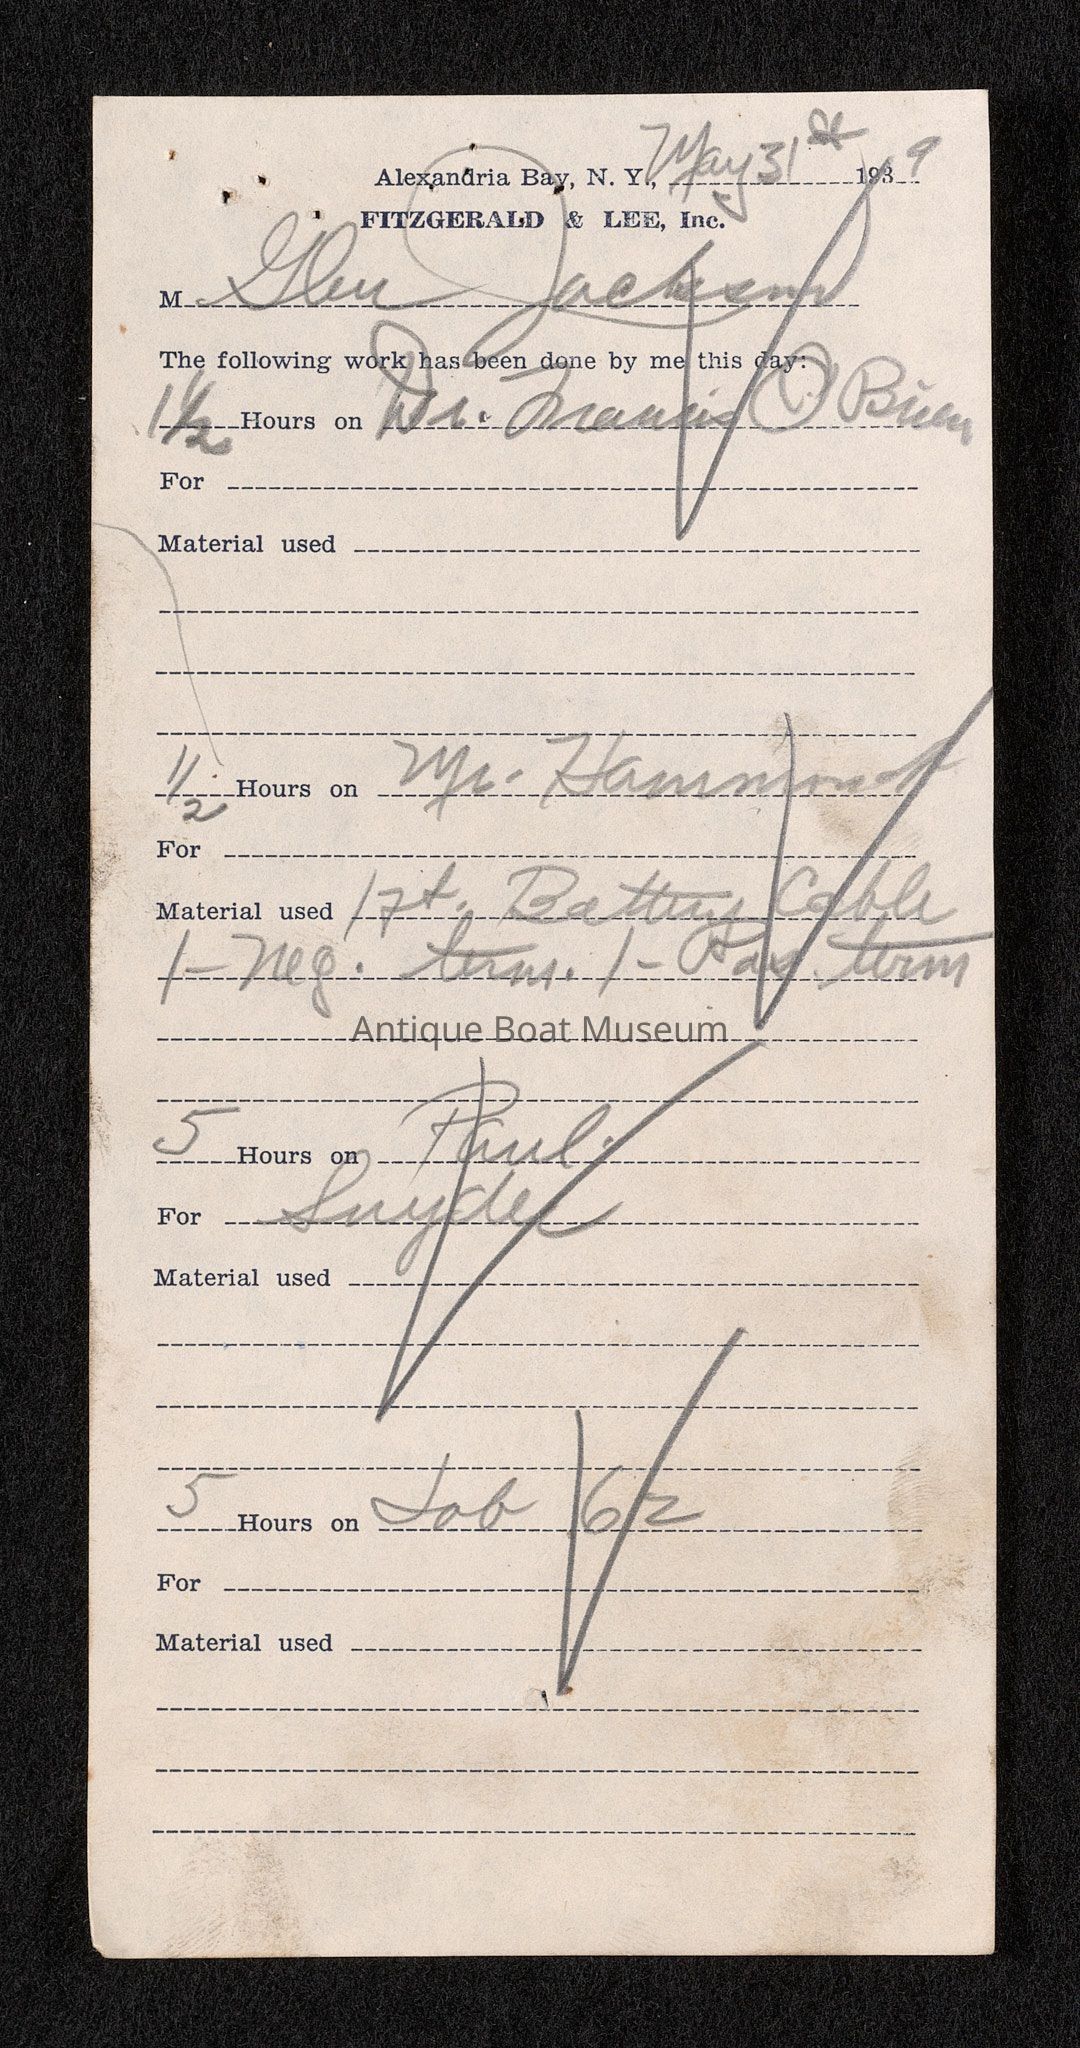 Alexandria Bay, N. Y., May 31st 1939
FITZGERALD & LEE, Inc.
M Glen Jackson
The following work has been done by me this day:
1 1/2 Hours on Dr. Francis O'Brien
For
Material used
1/2 Hours on Mr. Hammond
For
Material used 1 ft. Battery Cable
1- Neg. term. 1- Pos. term
Antique Boat Museum
5 Hours on Paul
For Snyder
Material used
5 Hours on Job 162
For
Material used